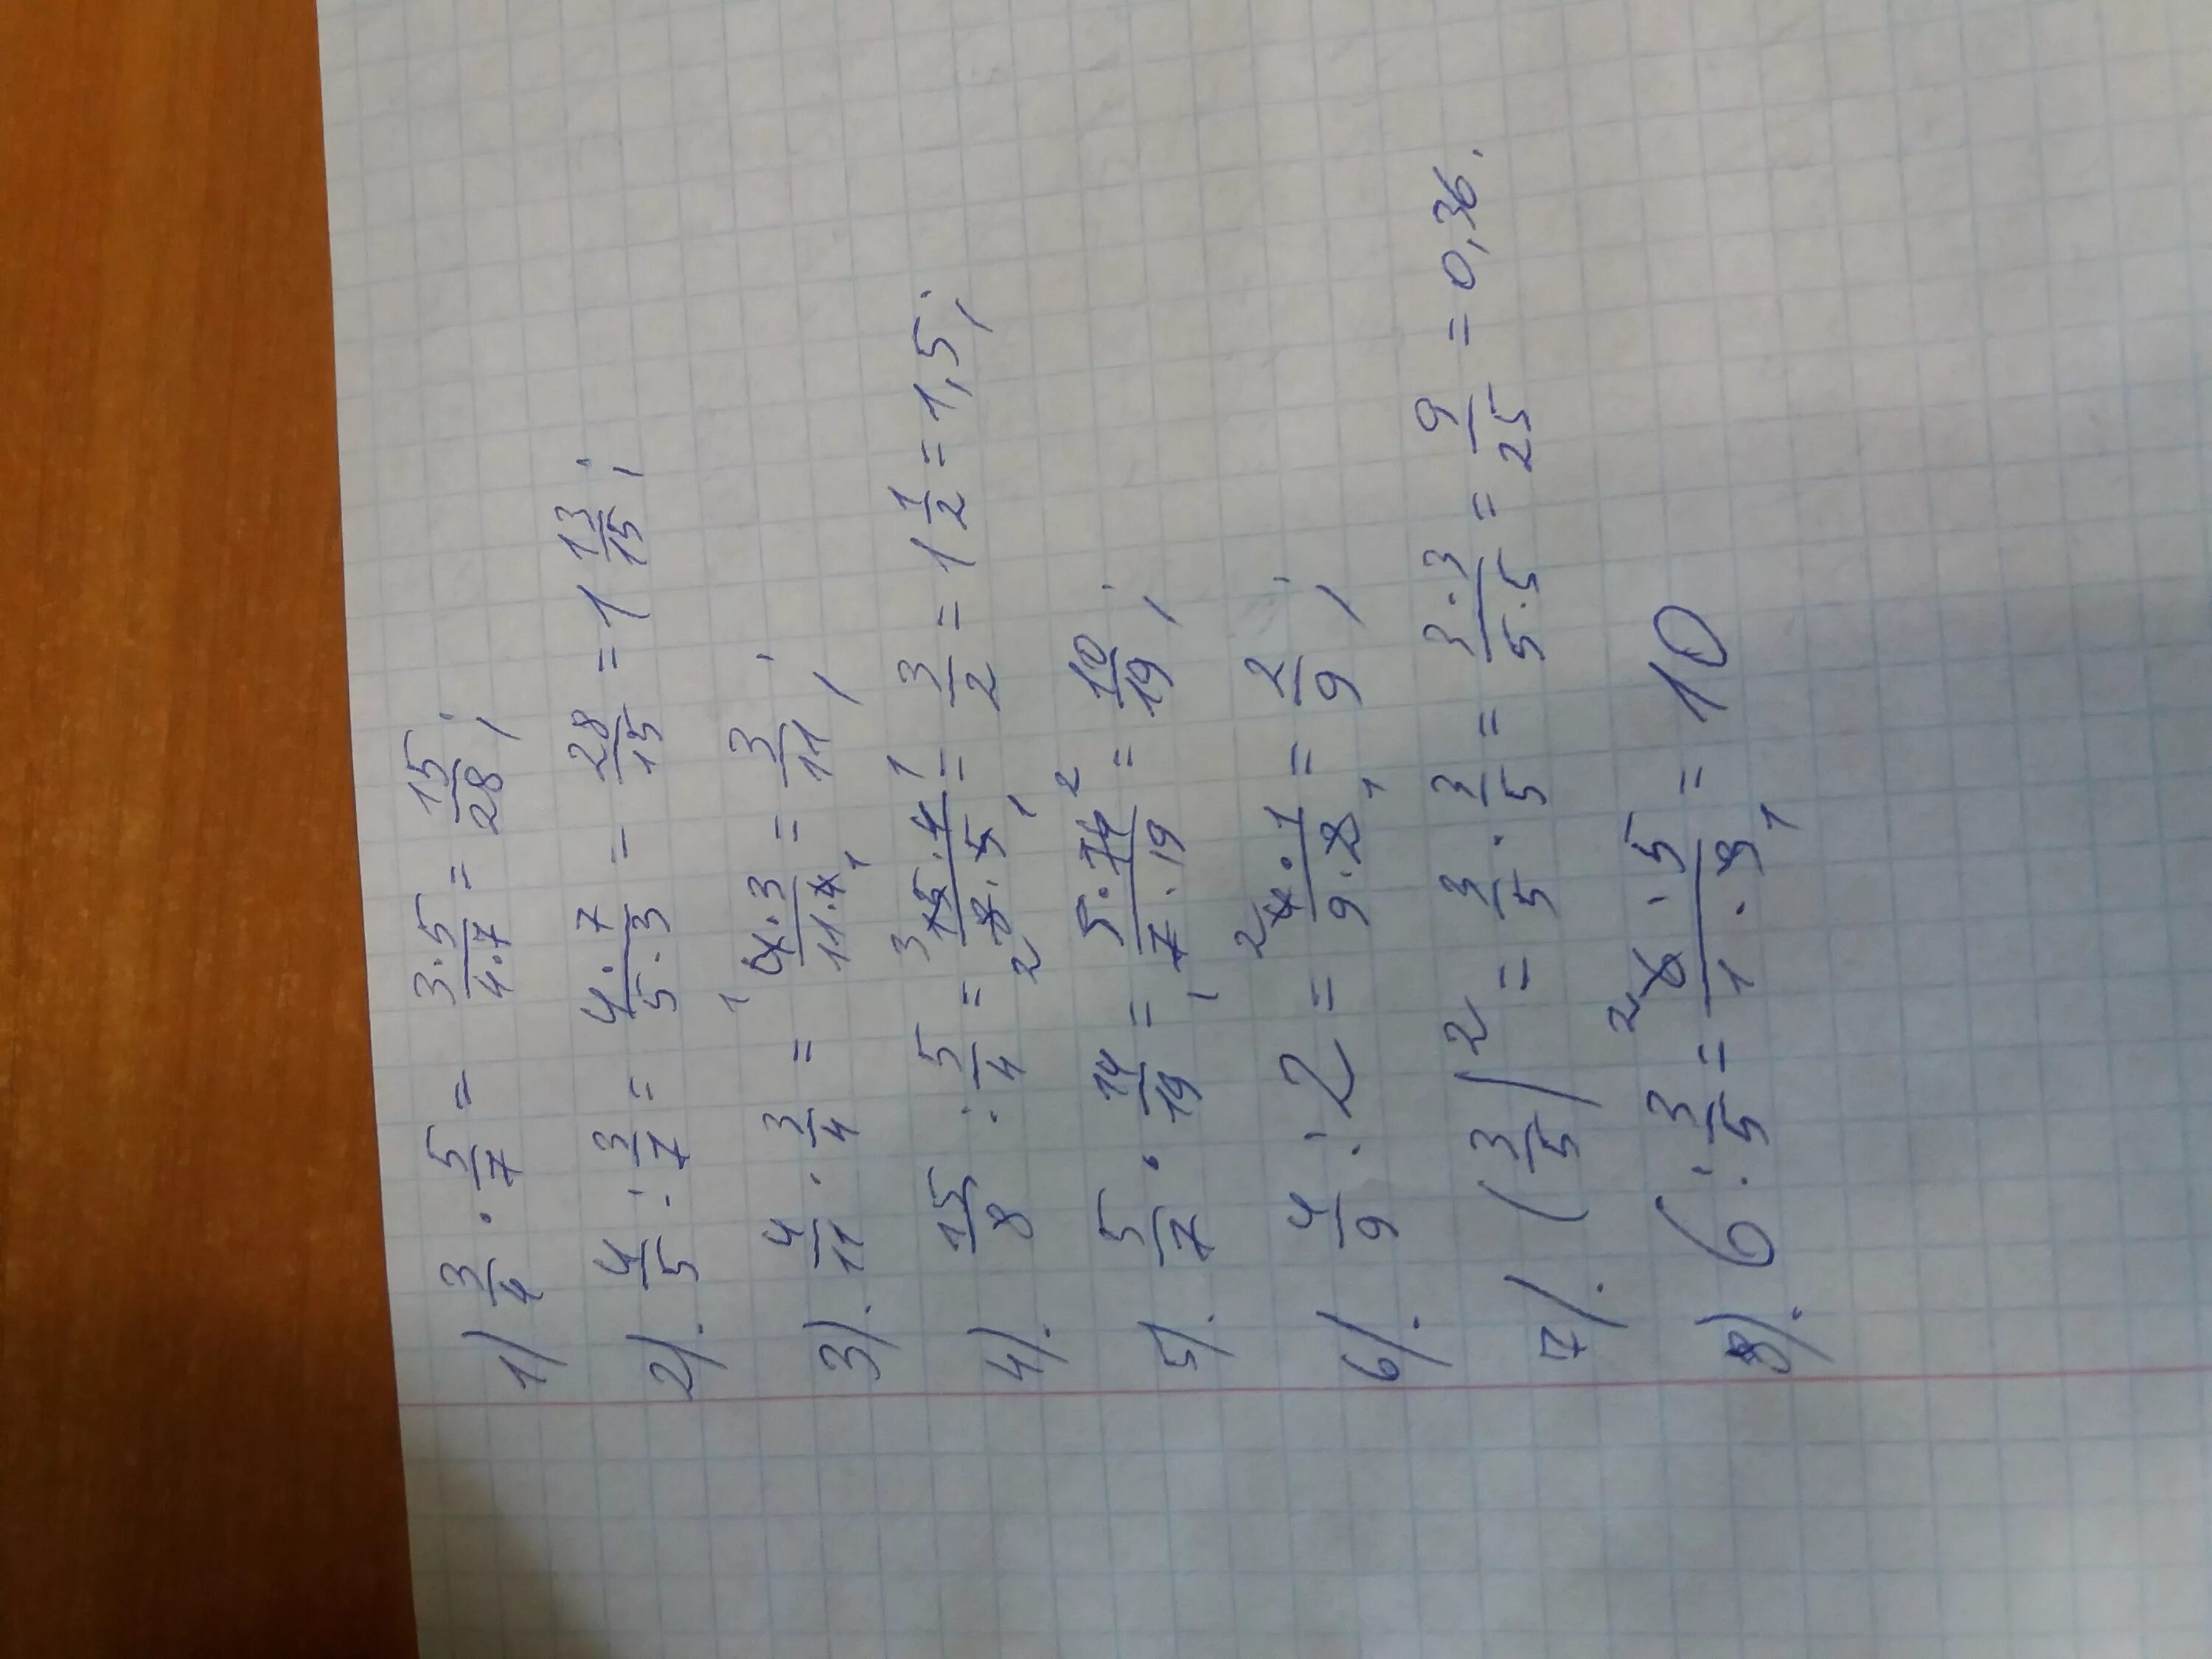 1) 3/4 · 5/7 = 3·5/4·7 = 15/28;
2). 4/5 : 3/7 = 4·7/5·3 = 28/15 = 1 13/15;
3). 4/11 · 3/4 = 1 4·3/11·4 1 = 3/11;
4). 15/8 : 5/4 = 3 15·4 1/2 8·5 1 = 3/2 = 1 1/2 = 1,5;
5). 5/7 · 14/19 = 5·14 2/1 7·19 = 10/19;
6). 4/9 : 2 = 2 4·1/9·2 1 = 2/9;
7). (3/5)² = 3/5 · 3/5 = 3·3/5·5 = 9/25 = 0,36.
8). 6 : 3/5 = 2 6·5/1·3 1 = 10